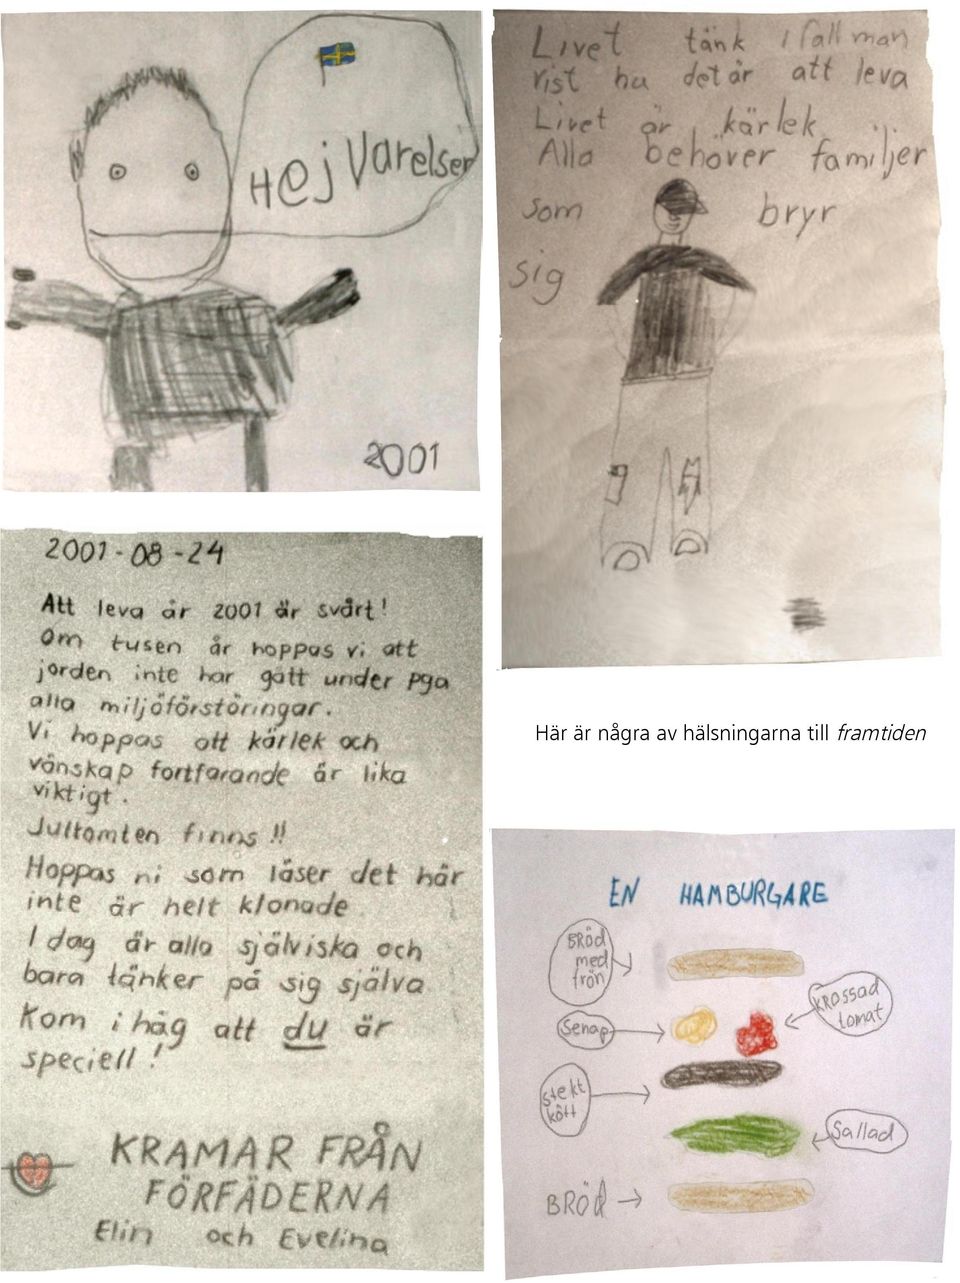 Hej Varelser
2001
Livet tänk ifall man
vist hu det är att leva
Livet är kärlek
Alla behöver familjer
som bryr
sig
2001-08-24
Att leva år 2001 är svårt!
Om tusen år hoppas vi att
jorden inte har gått under pga
alla miljöförstöringar.
Vi hoppas att kärlek och
vänskap fortfarande är lika
viktigt.
Jultomten finns !!
Hoppas ni som läser det här
inte är helt klonade
I dag är alla själviska och
bara tänker på sig själva
Kom ihåg att du är
speciell!
KRAMAR FRÅN
FÖRFÄDERNA
Elin och Evelina
Här är några av hälsningarna till framtiden
EN HAMBURGARE
BRÖD
med
frön
krossad
tomat
Senap
stekt
kött
Sallad
BRÖd